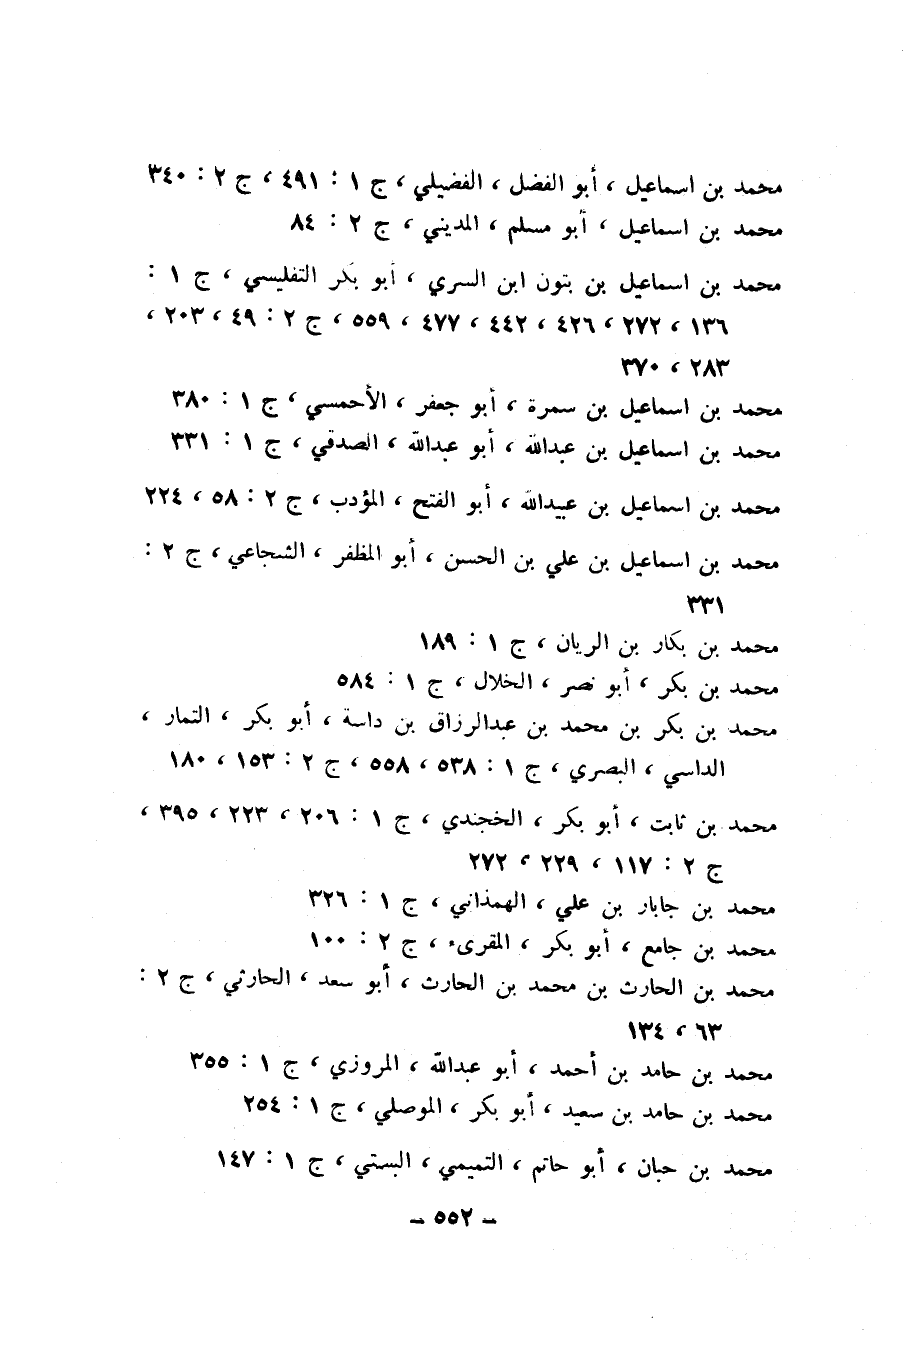 محمد بن اسماعيل ، أبو الفضل ، الفضيلي ، ج ١ : ٤٩١ ، ج ٢ : ٣٤٠
محمد بن اسماعيل ، أبو مسلم ، المديني ، ج ٢ : ٨٤
محمد بن اسماعيل بن بتون ابن السري ، أبو بكر التفليسي ، ج ١ :
١٣٦ ، ٢٧٢ ، ٤٢٦ ، ٤٤٢ ، ٤٧٧ ، ٥٥٩ ، ج ٢ : ٤٩ ، ٢٠٣ ،
٢٨٣ ، ٣٧٠
محمد بن اسماعيل بن سمرة ، أبو جعفر ، الأحمسي ، ج ١ : ٣٨٠
محمد بن اسماعيل بن عبدالله ، أبو عبدالله ، الصدقي ، ج ١ : ٣٣١
محمد بن اسماعيل بن عبيدالله ، أبو الفتح ، المؤدب ، ج ٢ : ٥٨ ، ٢٢٤
محمد بن اسماعيل بن علي بن الحسن ، أبو المظفر ، الشجاعي ، ج ٢ :
٣٣١
محمد بن بكار بن الريان ، ج ١ : ١٨٩
محمد بن بكر ، أبو نصر ، الخلال ، ج ١ : ٥٨٤
محمد بن بكر بن محمد بن عبدالرزاق بن داسة ، أبو بكر ، التمار ،
الداسي ، البصري ، ج ١ : ٥٣٨ ، ٥٥٨ ، ج ٢ : ١٥٣ ، ١٨٠
محمد بن ثابت ، أبو بكر ، الخجندي ، ج ١ : ٢٠٦ ، ٢٢٣ ، ٣٩٥ ،
ج ٢ : ١١٧ ، ٢٢٩ ، ٢٧٢
محمد بن جابار بن علي ، الهمذاني ، ج ١ : ٣٢٦
محمد بن جامع ، أبو بكر ، المقرىء ، ج ٢ : ١٠٠
محمد بن الحارث بن محمد بن الحارث ، أبو سعد ، الحارثي ، ج ٢ :
٦٣ ، ١٣٤
محمد بن حامد بن أحمد ، أبو عبدالله ، المروزي ، ج ١ : ٣٥٥
محمد بن حامد بن سعيد ، أبو بكر ، الموصلي ، ج ١ : ٢٥٤
محمد بن حبان ، أبو حاتم ، التميمي ، البستي ، ج ١ : ١٤٧
– ٥٥٢ –